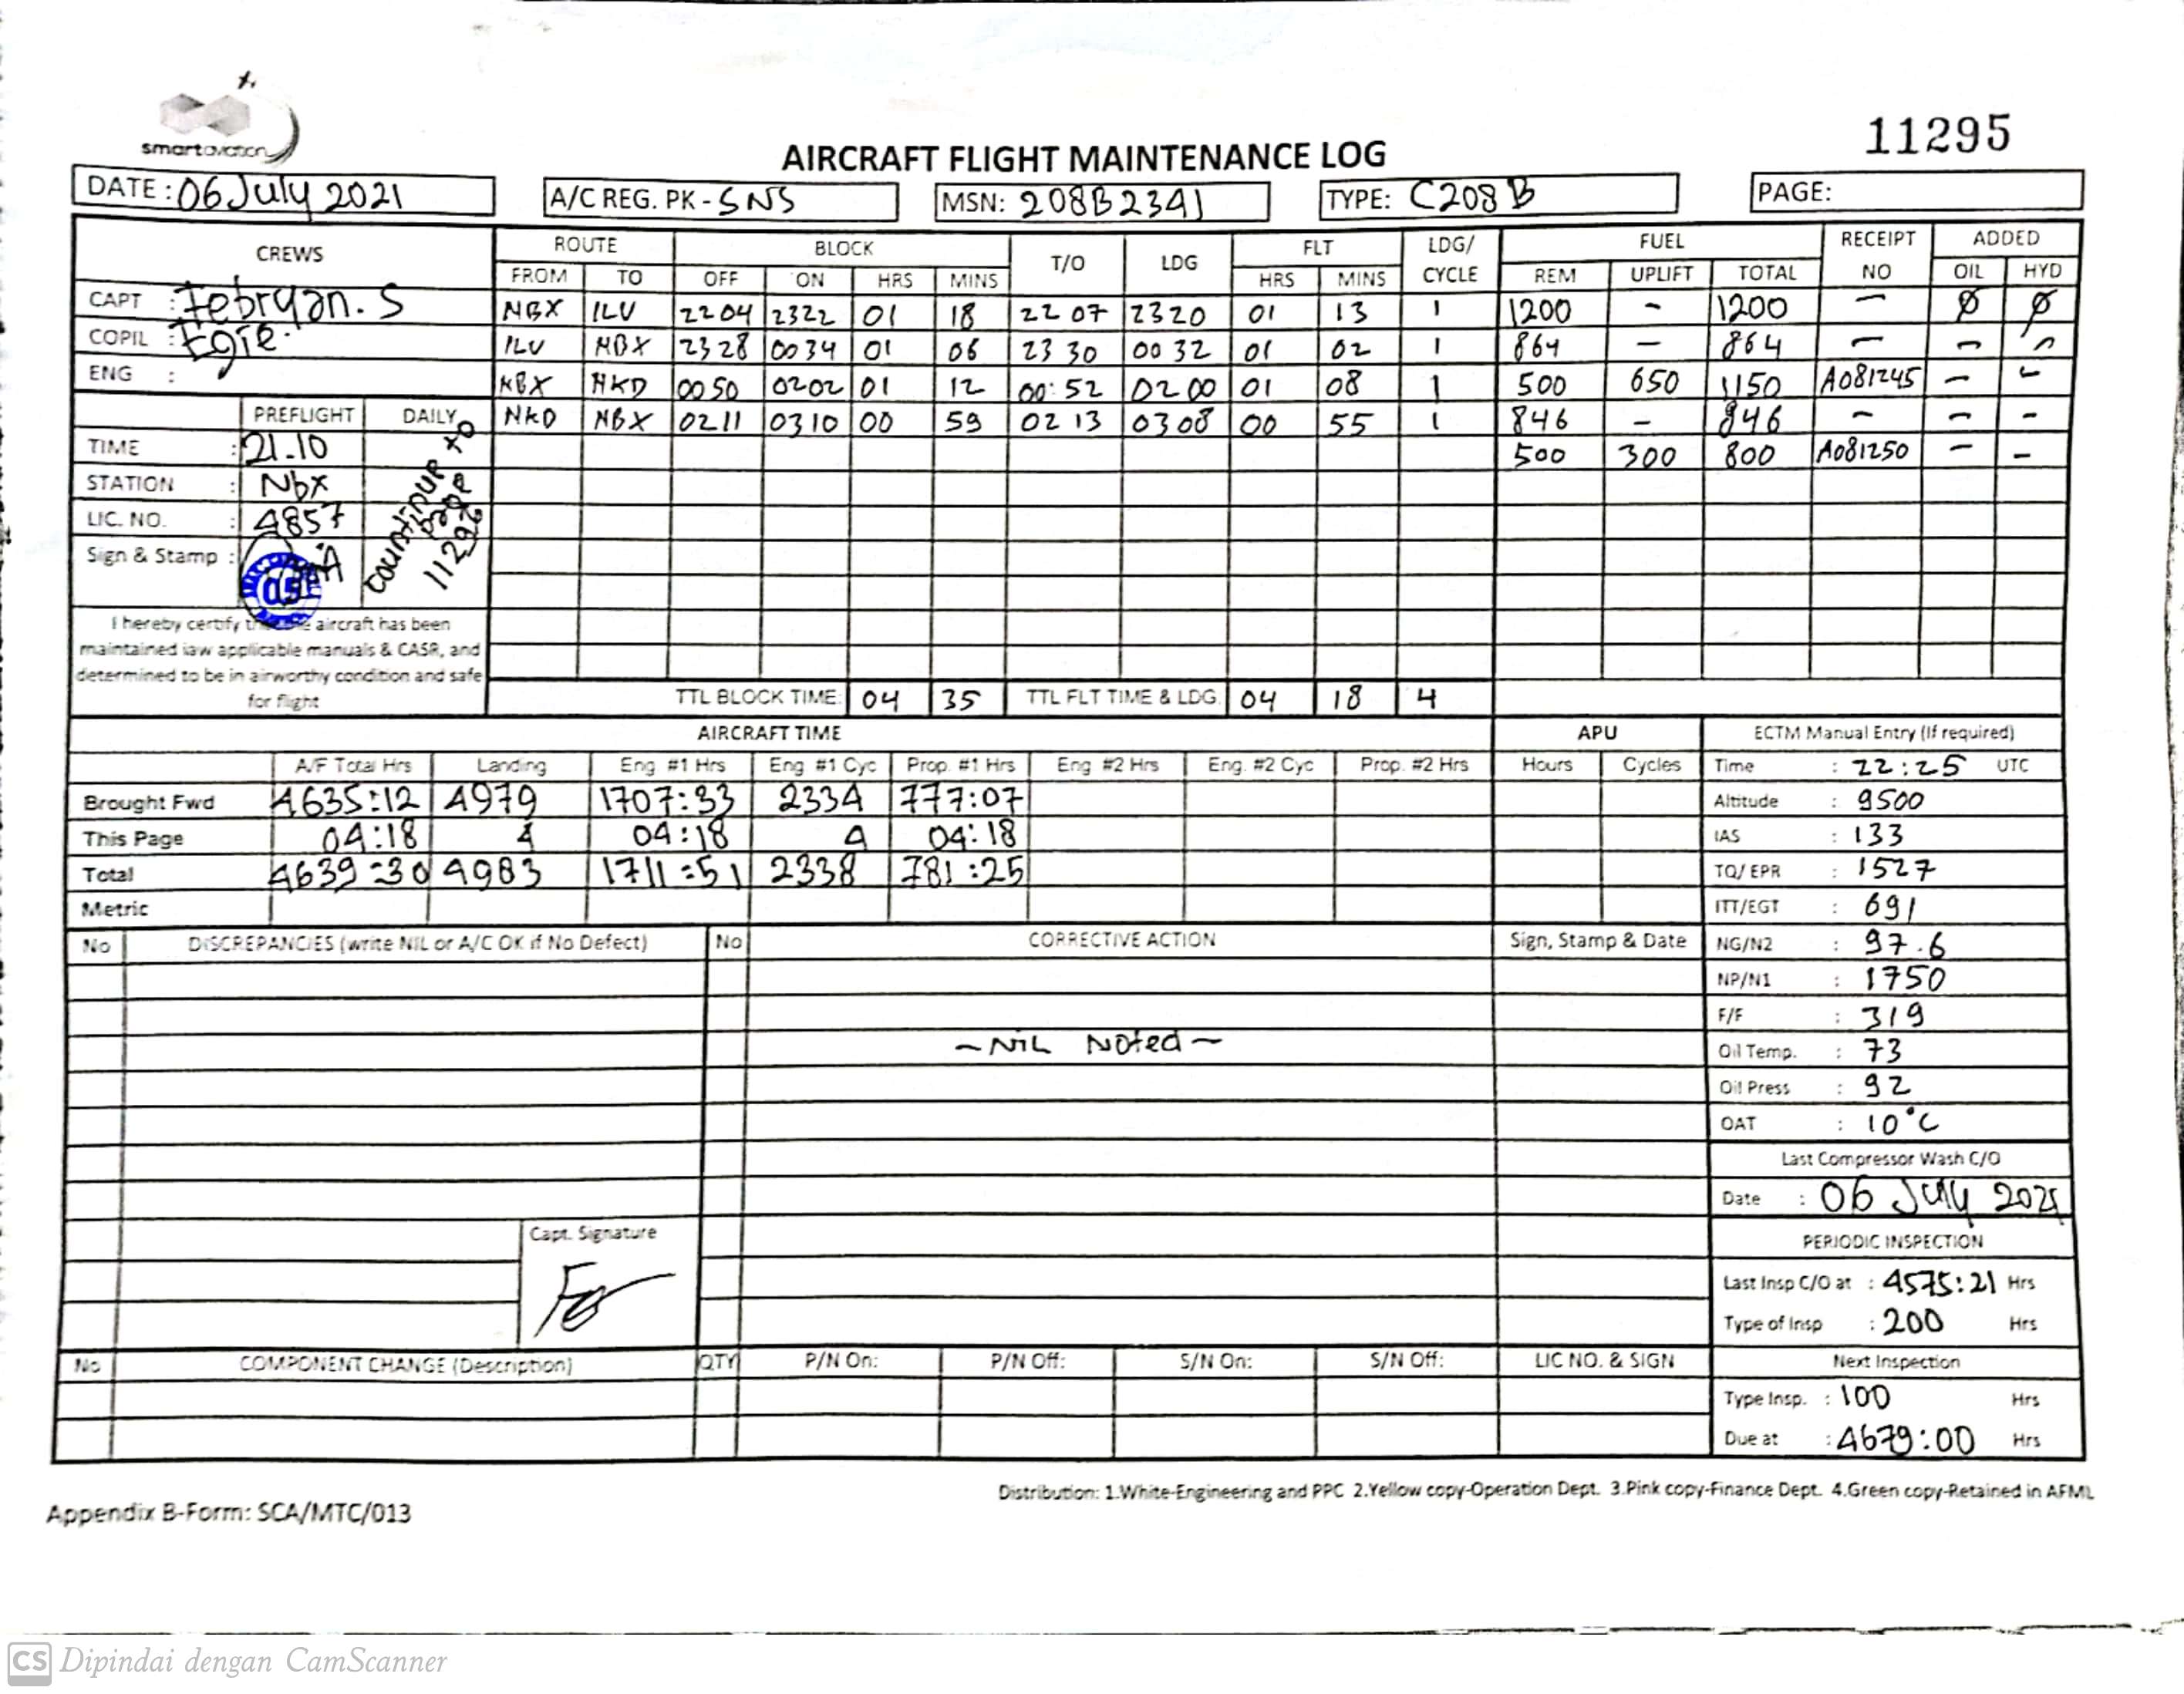 smartaviation
11295
AIRCRAFT FLIGHT MAINTENANCE LOG
DATE: 06 July 2021 A/C REG. PK - SNS MSN: 208B2341 TYPE: C208B PAGE:
CREWS ROUTE BLOCK T/O LDG FLT LDG/ CYCLE FUEL RECEIPT NO ADDED
FROM TO OFF ON HRS MINS HRS MINS REM UPLIFT TOTAL OIL HYD
CAPT : Febryan. S
COPIL : Egie.
ENG :
NBX ILU 2204 2322 01 18 22 07 2320 01 13 1 1200 - 1200 - Ø Ø
ILU NBX 2328 0034 01 06 23 30 00 32 01 02 1 864 - 864 - - -
NBX NKD 0050 0202 01 12 00:52 0200 01 08 1 500 650 1150 A081245 - -
NKD NBX 0211 0310 00 59 02 13 0308 00 55 1 846 - 846 - - -
500 300 800 A081250 - -
PREFLIGHT DAILY
TIME : 21.10
STATION : Nbx
LIC. NO. : 4857
Sign & Stamp :
page 11296
I hereby certify aircraft has been
maintained iaw applicable manuals & CASR, and
determined to be in airworthy condition and safe
for flight
TTL BLOCK TIME: 04 35 TTL FLT TIME & LDG. 04 18 4
AIRCRAFT TIME APU ECTM Manual Entry (If required)
A/F Total Hrs Landing Eng #1 Hrs Eng #1 Cyc Prop. #1 Hrs Eng #2 Hrs Eng. #2 Cyc Prop. #2 Hrs Hours Cycles
Brought Fwd 4635:12 4979 1707:33 2334 777:07
This Page 04:18 4 04:18 4 04:18
Total 4639:30 4983 1711:51 2338 781:25
Metric
Time : 22:25 UTC
Altitude : 9500
IAS : 133
TQ/ EPR : 1527
ITT/EGT : 691
NG/N2 : 97.6
NP/N1 : 1750
F/F : 319
Oil Temp. : 73
Oil Press : 92
OAT : 10°C
Last Compressor Wash C/O
Date : 06 July 2021
PERIODIC INSPECTION
Last Insp C/O at : 4575:21 Hrs
Type of Insp : 200 Hrs
Next Inspection
Type Insp. : 100 Hrs
Due at : 4679:00 Hrs
No DISCREPANCIES (write NIL or A/C OK if No Defect) No CORRECTIVE ACTION Sign, Stamp & Date
~ NIL Noted ~
Capt. Signature
No COMPONENT CHANGE (Description) QTY P/N On: P/N Off: S/N On: S/N Off: LIC NO. & SIGN
Distribution: 1.White-Engineering and PPC 2.Yellow copy-Operation Dept. 3.Pink copy-Finance Dept. 4.Green copy-Retained in AFML
Appendix B-Form: SCA/MTC/013
CS Dipindai dengan CamScanner